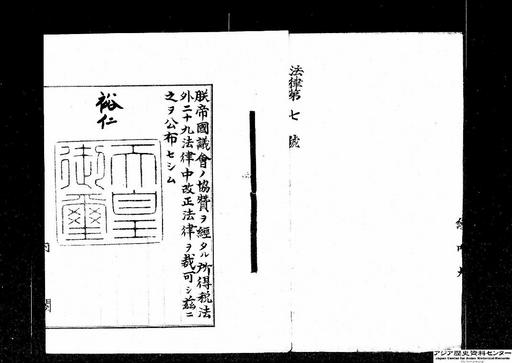 法律第七號
朕帝國議會ノ協賛ヲ經タル所得税法
外二十九法律中改正法律ヲ裁可シ茲ニ
之ヲ公布セシム
裕仁
天皇御璽
内閣
アジア歴史資料センター
Japan Center for Asian Historical Records